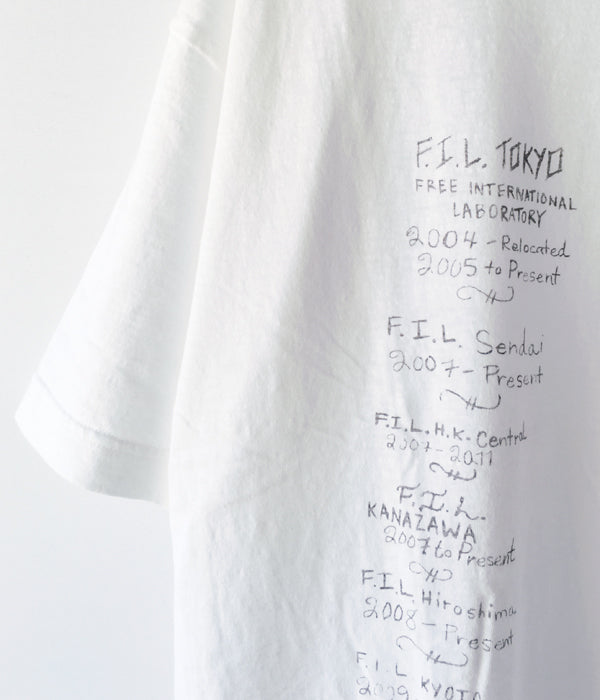 F.I.L. TOKYO
FREE INTERNATIONAL
LABORATORY
2004 - Relocated
2005 to Present
F.I.L. Sendai
2007 - Present
F.I.L. H.K. Central
2007 - 2011
F.I.L.
KANAZAWA
2007 to Present
F.I.L. Hiroshima
2008 - Present
F.I.L KYOTO
2009